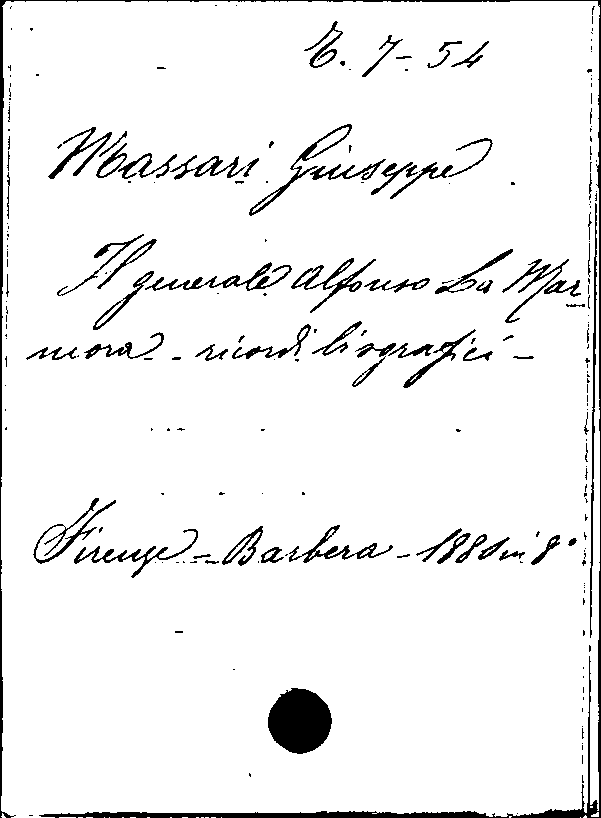 E. 7-54
Massari Giuseppe
Il generale Alfonso La Mar
mora - ricordi biografici -
Firenze - Barbera - 1880 in 8°